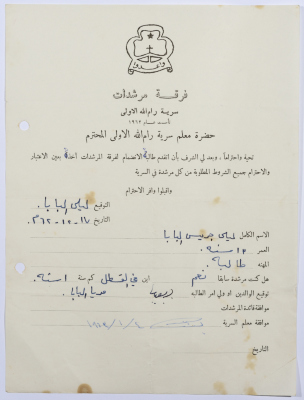 وأعدوا
فرقة مرشدات
سرية رام الله الاولى
تأسست عام ١٩١٢
حضرة معلم سرية رام الله الاولى المحترم
تحية واحتراما، وبعد لي الشرف بأن اتقدم طالبة الانضمام لفرقة المرشدات آخذة بعين الاعتبار
والاحترام جميع الشروط المطلوبة من كل مرشدة في السرية
واقبلوا وافر الاحترام
التوقيع ليلى البابا
التاريخ
الاسم الكامل ليلى جريس البابا
العمر سنة
المهنة طالبة
هل كنت مرشدة سابقا نعم اين كم سنة ١ سنة
توقيع الوالدين او ولي امر الطالبة البابا
موافقة قائدة المرشدات
موافقة معلم السرية
التاريخ